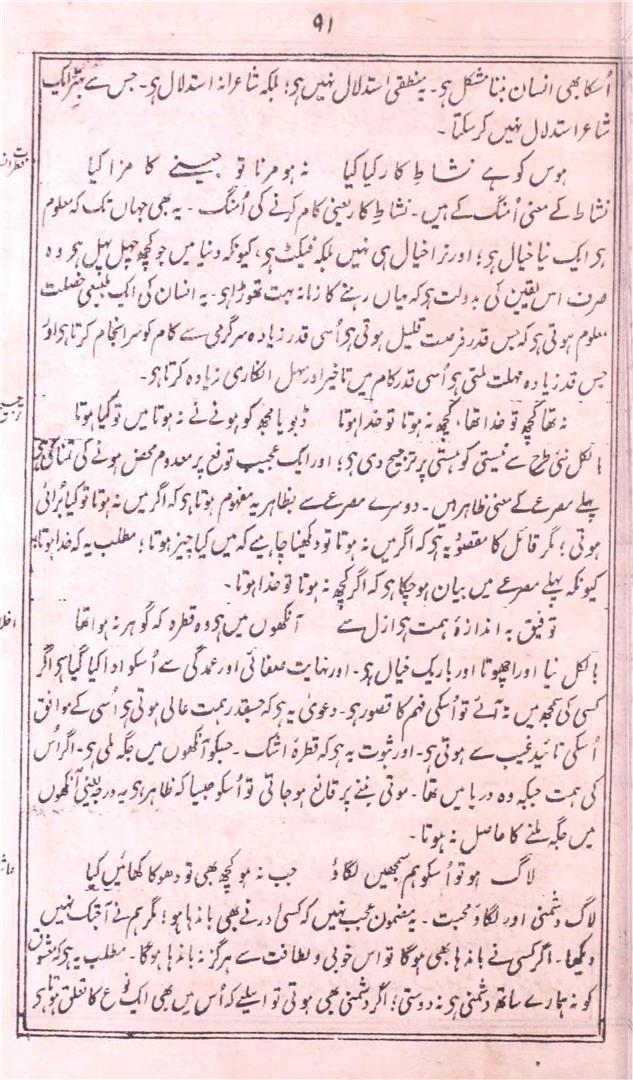 ۹۱
اُسکا بھی انسان بننا مشکل ہی۔ یہ منطقی استدلال نہیں ہی؛ بلکہ شاعرانہ استدلال ہی۔ جس سے بہتر ایک
شاعر استدلال نہیں کرسکتا۔
ہوس کو ہے نشاطِ کار کیا کیا نہ ہو مرنا تو جینے کا مزا کیا
نشاط کے معنی اُمنگ کے ہیں۔ نشاطِ کار یعنی کام کرنے کی اُمنگ۔ یہ بھی جہاں تک کہ معلوم
ہی ایک نیا خیال ہی؛ اور نرا خیال ہی نہیں بلکہ فیکٹ ہی، کیونکہ دنیا میں جو کچھ چہل پہل ہی وہ
صرف اس یقین کی بدولت ہی کہ یہاں رہنے کا زمانہ بہت تھوڑا ہی۔ یہ انسان کی ایک طبیعی خصلت
معلوم ہوتی ہی کہ جس قدر فرصت قلیل ہوتی ہی اُسی قدر زیادہ سرگرمی سے کام کو سرانجام کرتا ہی اور
جس قدر زیادہ مہلت ملتی ہی اُسی قدر کام میں تاخیر اور سہل انکاری زیادہ کرتا ہی۔
نہ تھا کچھ تو خدا تھا، کچھ نہ ہوتا تو خدا ہوتا ڈبویا مجھ کو ہونے نے نہ ہوتا میں تو کیا ہوتا
بالکل نئی طرح سے نیستی کو ہستی پر ترجیح دی ہی؛ اور ایک عجیب توقع پر معدوم محض ہونے کی تمنا کی ہی
پہلے مصرع کے معنی ظاہر ہیں۔ دوسرے مصرع سے بظاہر یہ مفہوم ہوتا ہی کہ اگر میں نہ ہوتا تو کیا بُرائی
ہوتی؛ مگر قائل کا مقصود یہ ہی کہ اگر میں نہ ہوتا تو دیکھنا چاہیے کہ میں کیا چیز ہوتا؛ مطلب یہ کہ خدا ہوتا؛
کیونکہ پہلے مصرع میں بیان ہوچکا ہی کہ اگر کچھ نہ ہوتا تو خدا ہوتا۔
توفیق بہ اندازۂ ہمت ہی ازل سے آنکھوں میں ہی وہ قطرہ کہ گوہر نہ ہوا تھا
بالکل نیا اور اچھوتا اور باریک خیال ہی۔ اور نہایت صفائی اور عمدگی سے اُسکو ادا کیا گیا ہی اگر
کسی کی سمجھ میں نہ آئے تو اُسکی فہم کا قصور ہی۔ دعویٰ یہ ہی کہ جسقدر ہمت عالی ہوتی ہی اُسی کے موافق
اُسکی تائید غیب سے ہوتی ہی۔ اور ثبوت یہ ہی کہ قطرۂ اشک۔ جسکو آنکھوں میں جگہ ملی ہی۔ اگر اُس
کی ہمت جبکہ وہ دریا میں تھا۔ موتی بننے پر قانع ہوجاتی تو اُسکو جیسا کہ ظاہر ہی یہ درجہ یعنی آنکھوں
میں جگہ ملنے کا حاصل نہ ہوتا۔
لاگ ہو تو اُسکو ہم سمجھیں لگاؤ جب نہ ہو کچھ بھی تو دھوکا کھائیں کیا
لاگ دشمنی اور لگاؤ محبت۔ یہ مضمون عجب نہیں کہ کسی اور نے بھی باندھا ہو؛ مگر ہم نے آجتک نہیں
دیکھا۔ اگر کسی نے باندھا بھی ہوگا تو اس خوبی و لطافت سے ہرگز نہ باندھا ہوگا۔ مطلب یہ ہی کہ معشوق
کو نہ ہمارے ساتھ دشمنی ہی نہ دوستی؛ اگر دشمنی بھی ہوتی تو اسلیے کہ اُس میں بھی ایک نوع کا تعلق ہوتا ہی